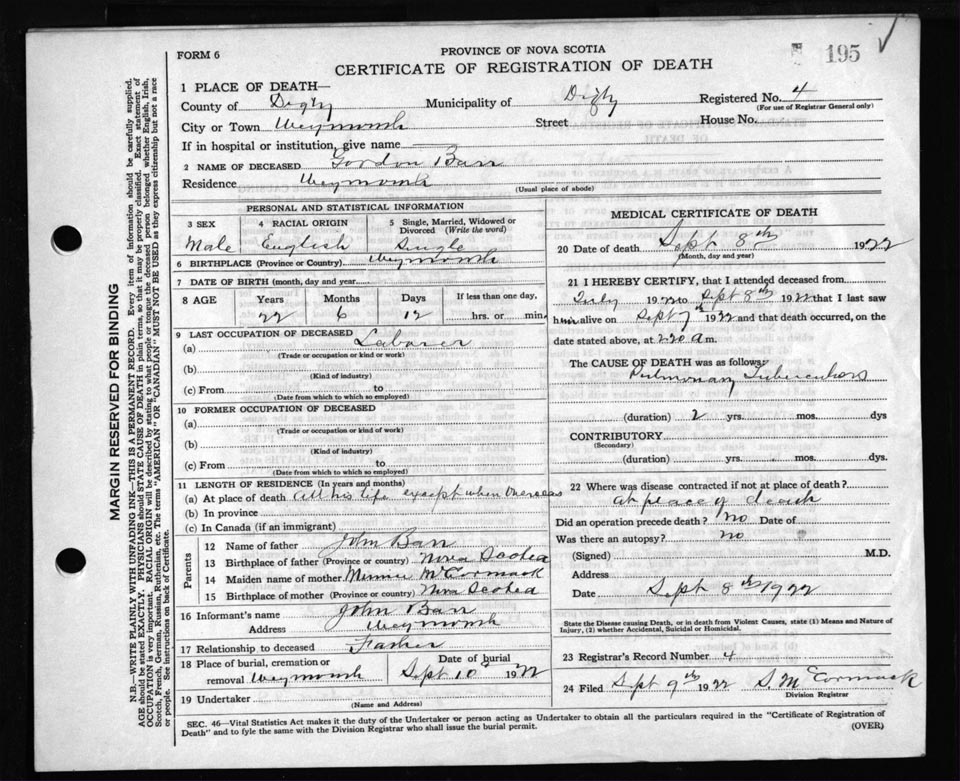 195 ✓
FORM 6
PROVINCE OF NOVA SCOTIA
CERTIFICATE OF REGISTRATION OF DEATH
1 PLACE OF DEATH—
County of Digby Municipality of Digby Registered No. 4
(For use of Registrar General only)
City or Town Weymouth Street House No.
If in hospital or institution, give name
2 NAME OF DECEASED Gordon Barr
Residence Weymouth
(Usual place of abode)
PERSONAL AND STATISTICAL INFORMATION
3 SEX 4 RACIAL ORIGIN 5 Single, Married, Widowed or Divorced (Write the word)
Male English Single
6 BIRTHPLACE (Province or Country) Weymouth
7 DATE OF BIRTH (month, day and year)
8 AGE Years Months Days If less than one day,
22 6 12 hrs. or min.
9 LAST OCCUPATION OF DECEASED
(a) Laborer
(Trade or occupation or kind or work)
(b)
(Kind of industry)
(c) From to
(Date from which to which so employed)
10 FORMER OCCUPATION OF DECEASED
(a)
(Trade or occupation or kind of work)
(b)
(Kind of industry)
(c) From to
(Date from which to which so employed)
11 LENGTH OF RESIDENCE (In years and months)
(a) At place of death all his life except when Overseas
(b) In province
(c) In Canada (if an immigrant)
Parents
12 Name of father John Barr
13 Birthplace of father (Province or country) Nova Scotia
14 Maiden name of mother Minnie McCormack
15 Birthplace of mother (Province or country) Nova Scotia
16 Informant's name John Barr
Address Weymouth
17 Relationship to deceased Father
18 Place of burial, cremation or removal Weymouth
Date of burial
Sept 10 1922
19 Undertaker
(Name and Address)
MEDICAL CERTIFICATE OF DEATH
20 Date of death Sept 8th 1922
(Month, day and year)
21 I HEREBY CERTIFY, that I attended deceased from
July 1922 to Sept 8th 1922 that I last saw
him alive on Sept 7th 1922 and that death occurred, on the
date stated above, at 2.30 a m.
The CAUSE OF DEATH was as follows:
Pulmonary Tuberculosis
(duration) 2 yrs. mos. dys
CONTRIBUTORY
(Secondary)
(duration) yrs. mos. dys.
22 Where was disease contracted if not at place of death?
At place of death
Did an operation precede death? no Date of
Was there an autopsy? no
(Signed) M.D.
Address
Date Sept 8th 1922
State the Disease causing Death, or in death from Violent Causes, state (1) Means and Nature of
Injury, (2) whether Accidental, Suicidal or Homicidal.
23 Registrar's Record Number 4
24 Filed Sept 9th 1922 S. McCormack
Division Registrar
SEC. 46—Vital Statistics Act makes it the duty of the Undertaker or person acting as Undertaker to obtain all the particulars required in the "Certificate of Registration of
Death" and to fyle the same with the Division Registrar who shall issue the burial permit.
(OVER)
MARGIN RESERVED FOR BINDING
N.B.—WRITE PLAINLY WITH UNFADING INK—THIS IS A PERMANENT RECORD. Every item of information should be carefully supplied.
AGE should be stated EXACTLY. PHYSICIANS should STATE CAUSE OF DEATH in plain terms, so that it may be properly classified. Exact statement of
OCCUPATION is very important. RACIAL ORIGIN will be described by stating to what people or tongue the deceased person belonged whether English, Irish,
Scotch, French, German, Russian, Ruthenian, etc. The terms "AMERICAN" OR "CANADIAN" MUST NOT BE USED as they express citizenship but not a race
or people. See instructions on back of Certificate.